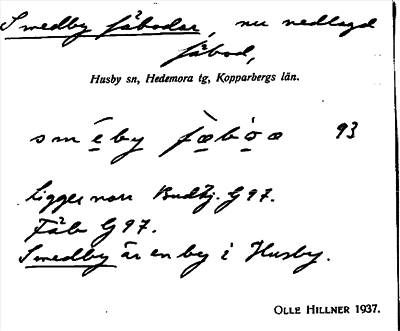 Smedby fäbodar, nu nedlagd
fäbod,
Husby sn, Hedemora tg, Kopparbergs län.
smeby fæboæ 93
Ligger norr Budtj. G 97.
Fäb G 97.
Smedby är en by i Husby.
OLLE HILLNER 1937.